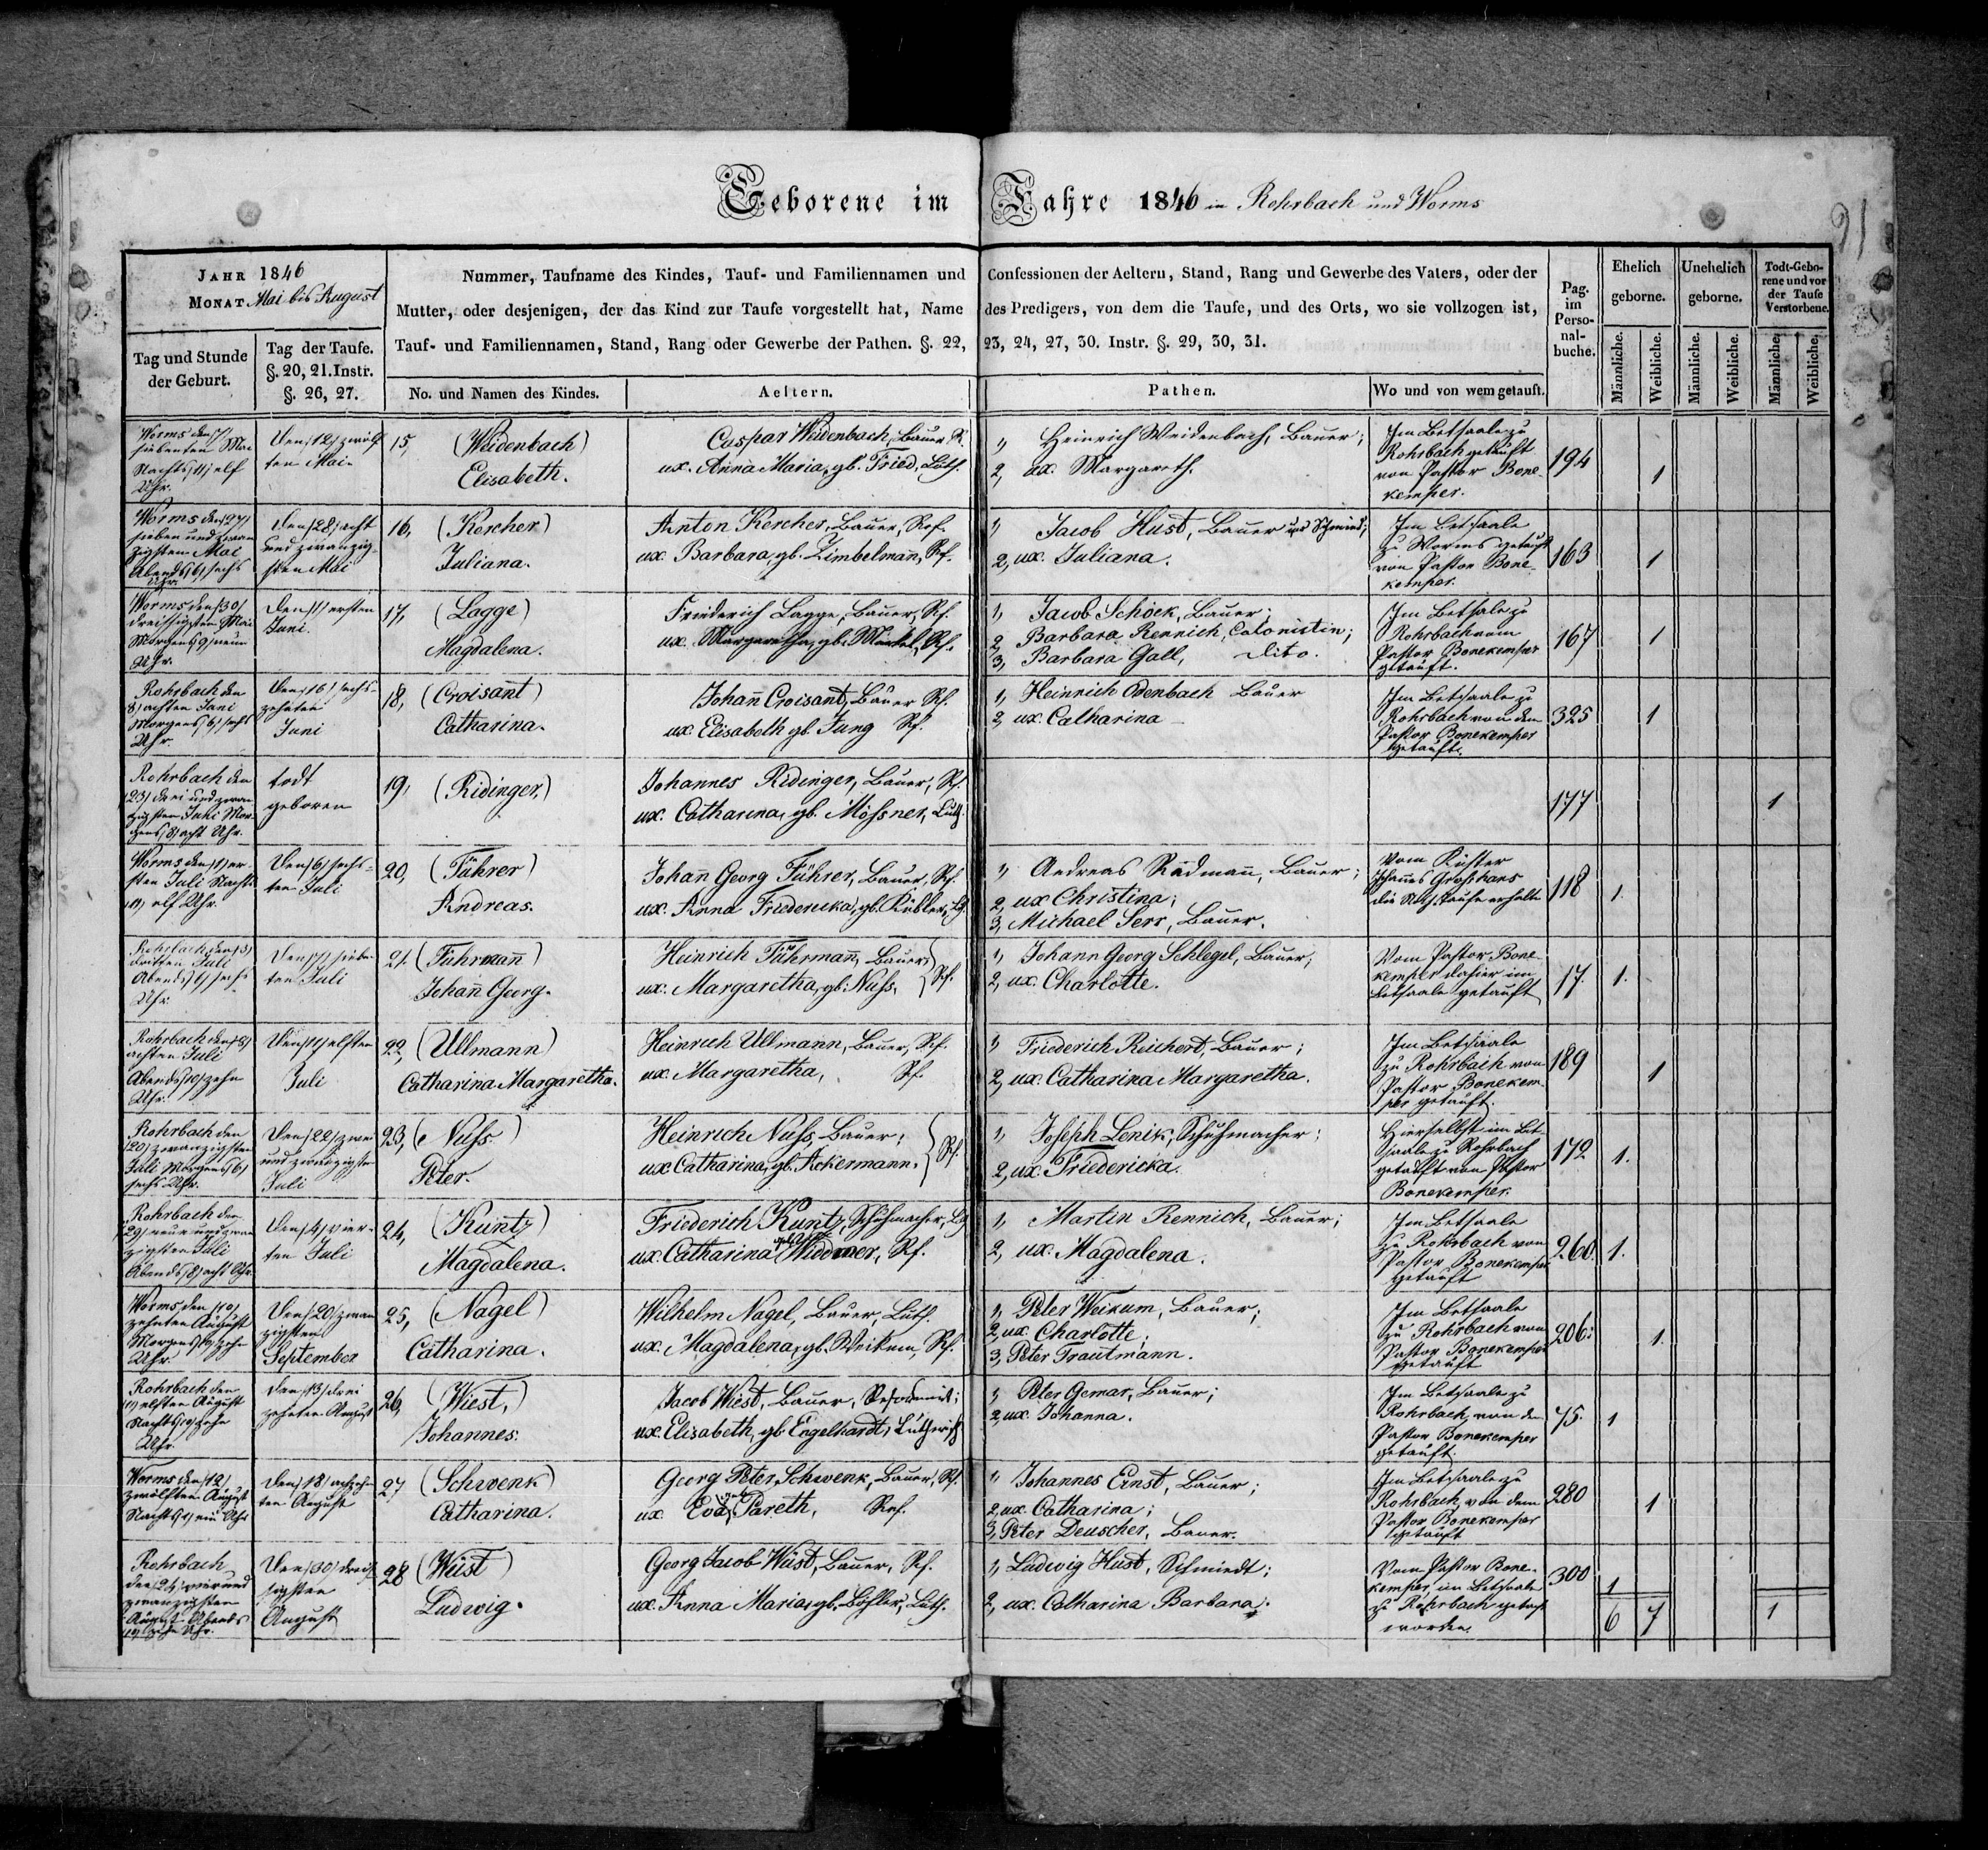 Geborene im Jahre 1846 in Rohrbach und Worms
91
Jahr 1846
Monat Mai bis August
Nummer, Taufname des Kindes, Tauf- und Familiennamen und Confessionen der Aeltern, Stand, Rang und Gewerbe des Vaters, oder der
Mutter, oder desjenigen, der das Kind zur Taufe vorgestellt hat, Name des Predigers, von dem die Taufe, und des Orts, wo sie vollzogen ist,
Tauf- und Familiennamen, Stand, Rang oder Gewerbe der Pathen. §. 22, 23, 24, 27, 30. Instr. §. 29, 30, 31.
Tag und Stunde
der Geburt.
Tag der Taufe.
§. 20, 21. Instr.
§. 26, 27.
No. und Namen des Kindes.
Aeltern.
Pathen.
Wo und von wem getauft.
Pag.
im
Perso-
nal-
buche.
Ehelich
geborne.
Unehelich
geborne.
Todt-Gebo-
rene und vor
der Taufe
Verstorbene.
Männliche.
Weibliche.
Männliche.
Weibliche.
Männliche.
Weibliche.
Worms den /7/
siebenten Mai
Nachts /11/ elf
Uhr.
Den /12/ zwölf
ten Mai
15, (Weidenbach)
Elisabeth.
Caspar Weidenbach, Bauer, R.
ux. Anna Maria, gb. Fried, Luth.
1, Heinrich Weidenbach, Bauer;
2, ux. Margareth.
Im Betsaale zu
Rohrbach getauft
von Pastor Bone-
kemper.
194
1
Worms den /27/
sieben und zwan
zigsten Mai
Abends /6/ sechs
Uhr.
Den /28/ acht
und zwanzig-
sten Mai
16, (Kercher)
Juliana.
Anton Kercher, Bauer, Ref.
ux. Barbara, gb. Zimbelmañ, Rf.
1, Jacob Hust, Bauer und Schmied;
2, ux. Juliana.
Im Betsaale
zu Worms getauft
von Pastor Bone-
kemper.
163
1
Worms den /30/
dreissigsten Mai
Morgens /9/ neun
Uhr.
Den /1/ ersten
Juni.
17, (Lagge)
Magdalena.
Friederich Lagge, Bauer, Rf.
ux. Margaretha, gb. Rf.
1, Jacob Schock, Bauer;
2, Barbara Rennich, Colonistin;
3, Barbara Gall, dito.
Im Betsale zu
Rohrbach vom
Pastor Bonekemper
getauft.
167
1
Rohrbach den
8/ achten Juni
Morgens /6/ sechs
Uhr.
Den /16/ sechs-
zehnten
Juni
18, (Croisant)
Catharina.
Johañ Croisant, Bauer Rf.
ux. Elisabeth gb. Jung Rf.
1, Heinrich Odenbach Bauer
2, ux. Catharina
Im Betsaale zu
Rohrbach von dem
Pastor Bonekemper
getauft.
325
1
Rohrbach den
/23/ drei und zwan
zigsten Juni Mor-
gens /8/ acht Uhr.
todt
geboren
19, (Ridinger)
Johannes Ridinger, Bauer, Rf.
ux. Catharina, gb. Mössner, Luth.
177
1
Worms den /1/ er-
sten Juli Nachts
/11/ elf Uhr.
Den /6/ sechs-
ten Juli
20, (Führer)
Andreas.
Johañ Georg Führer, Bauer, Rf.
ux. Anna Friedericka, gb. Kübler,
1, Andreas Rädmañ, Bauer;
2, ux Christina;
3, Michael Serr, Bauer.
Vom Küster
Johañes Grosshans
die Nothtaufe erhalten
118
1.
Rohrbach den /3/
dritten Juli
Abends /6/ sechs
Uhr.
Den /7/ sieben-
ten Juli
21. (Fuhrmañ)
Johañ Georg.
Heinrich Fuhrmañ, Bauer
ux. Margaretha, gb: Nuss, Rf.
1, Johann Georg Schlegel, Bauer;
2, ux. Charlotte.
Vom Pastor Bone-
kemper dahier im
Betsaale getauft
17.
1.
Rohrbach den /8/
achten Juli
Abends /10/ zehn
Uhr.
Den /11/ elften
Juli
22, (Ullmann)
Catharina Margaretha.
Heinrich Ullmann, Bauer, Rf.
ux. Margaretha, Rf.
1, Friederich Reichert, Bauer;
2, ux. Catharina Margaretha.
Im Betsaale
zu Rohrbach vom
Pastor Bonekem-
per getauft.
189
1
Rohrbach den
/20/ zwanzigsten
Juli Morgens /6/
sechs Uhr.
Den /22/ zwei
und zwanzigsten
Juli
23, (Nuss)
Peter.
Heinrich Nuss, Bauer;
ux. Catharina, gb. Ackermann. Rf.
1, Joseph Lenik, Schuhmacher;
2, ux. Friedericka.
Hierselbst im Bet-
saale zu Rohrbach
getauft vom Pastor
Bonekemper.
172
1.
Rohrbach den
/29/ neun und zwan
zigsten Juli
Abends /8/ acht Uhr
Den /4/ vier-
ten Juli
24, (Kuntz)
Magdalena.
Friederich Kuntz, Schuhmacher,
ux. Catharina geb. Widdmer, Rf.
1, Martin Rennich, Bauer;
2, ux. Magdalena.
Im Betsaale
zu Rohrbach von
Pastor Bonekemper
getauft
260.
1.
Worms, den /10/
zehnten August
Morgens /10/ zehn
Uhr.
Den /20/ zwan
zigsten
September
25, (Nagel)
Catharina.
Wilhelm Nagel, Bauer, Luth.
ux. Magdalena, gb. Weikum, Rf.
1, Peter Weikum, Bauer;
2, ux. Charlotte;
3, Peter Trautmann.
Im Betsaale
zu Rohrbach von
Pastor Bonekemper
getauft
206.
1.
Rohrbach den
/11/ elften August
Nachts /10/ zehn
Uhr.
Den /13/ drei
zehnten August
26, (Wiest,)
Johannes.
Jacob Wiest, Bauer, Reformirt;
ux. Elisabeth, gb. Engelhardt, Lutherisch
1, Peter Gemar, Bauer;
2, ux. Johanna.
Im Betsaale zu
Rohrbach, von dem
Pastor Bonekemper
getauft.
75.
1
Worms den /12/
zwölften August
Nachts /1/ ein Uhr
Den /18/ achtzehn-
ten August
27 (Schwenk)
Catharina.
Georg Peter Schwenk, Bauer, Rf.
ux. Eva, geb. Pareth, Ref.
1, Johannes Ernst, Bauer;
2, ux. Catharina;
3, Peter Deuscher, Bauer.
Im Betsaale zu
Rohrbach, von dem
Pastor Bonekemper
getauft
280
1
Rohrbach
den /24/ vier und
zwanzigsten
August Abends
/10/ zehn Uhr.
Den /30/ dreis-
sigsten
August
28 (Wüst)
Ludwig.
Georg Jacob Wüst, Bauer, Rf.
ux. Anna Maria, gb. Böhler, Luth.
1, Ludwig Hust, Schmiedt;
2, ux. Catharina Barbara.
Vom Pastor Bone-
kemper, im Betsaale
zu Rohrbach getauft
worden.
300
1
6 7 1